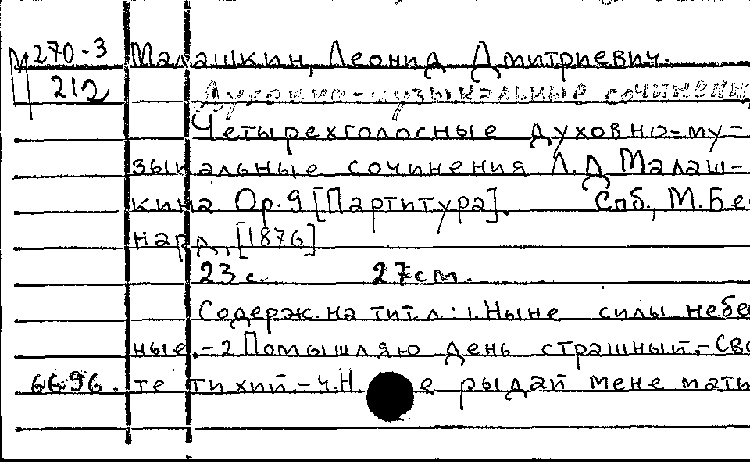 М270-3 Малашкин, Леонид Дмитриевич.
212 Духовно-музыкальные сочинения
Четырехголосные духовно-му-
зыкальные сочинения Л.Д Малаш-
кина Ор.9 [Партитура]. Спб., М.Бе
нард, [1876]
23 с. 27см.
Содерж. на тит.л.: 1.Ныне силы небе
ные.-2.Помышляю день страшный.-Све
6696. те тихий.-4.Н е рыдай мене мати